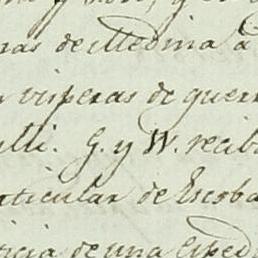 de Medina a
visperas de guerr
G. y W. recib
rticular de Escoba
ticia de una Esped